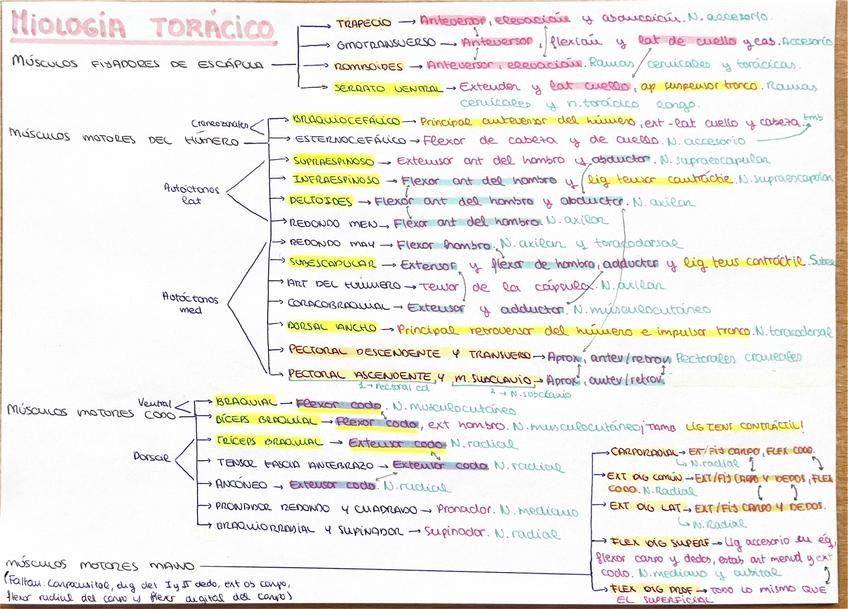 MIOLOGÍA TORÁCICO
MÚSCULOS FIJADORES DE ESCÁPULA
TRAPECIO → Anteversor, elevación y abducción. N. accesorio.
OMOTRANSVERSO → Anteversor, flexión y lat de cuello y cab. Accesorio
ROMBOIDES → Anteversor, elevación. Ramas cervicales y torácicas.
SERRATO VENTRAL → Extender y lat cuello, ap suspensor tronco. Ramas
cervicales y n. torácico longo.
MÚSCULOS MOTORES DEL HÚMERO
Craneozonales
BRAQUIOCEFÁLICO → Principal anteversor del húmero, ext-lat cuello y cabeza. tmb
ESTERNOCEFÁLICO → Flexor de cabeza y de cuello. N. accesorio
Autóctonos lat
SUPRAESPINOSO → Extensor ant del hombro y abductor. N. supraescapular
INFRAESPINOSO → Flexor ant del hombro y lig tensor contráctil. N. supraescapular
DELTOIDES → Flexor ant del hombro y abductor. N. axilar
REDONDO MEN → Flexor ant del hombro. N. axilar
Autóctonos med
REDONDO MAY → Flexor hombro. N. axilar y toracodorsal
SUBESCAPULAR → Extensor y flexor de hombro, adductor y lig tens contráctil. Subes
ART DEL HÚMERO → Tensor de la cápsula. N. axilar
CORACOBRAQUIAL → Extensor y adductor. N. músculocutáneo
DORSAL ANCHO → Principal retroversor del húmero e impulsor tronco. N. toracodorsal
PECTORAL DESCENDENTE Y TRANSVERSO → Aprox, antev/retrov. Pectorales craneales
PECTORAL ASCENDENTE, Y M. SUBCLAVIO → Aprox, antev/retrov.
1 → Pectoral cd 2 → N. subclavio
MÚSCULOS MOTORES CODO
Ventral
BRAQUIAL → Flexor codo. N. musculocutáneo
BÍCEPS BRAQUIAL → Flexor codo, ext hombro. N. musculocutáneo ¡TAMB LIG TENS CONTRÁCTIL!
Dorsal
TRÍCEPS BRAQUIAL → Extensor codo. N. radial
TENSOR FASCIA ANTEBRAZO → Extensor codo. N. radial
ANCÓNEO → Extensor codo. N. radial
PRONADOR REDONDO Y CUADRADO → Pronador. N. mediano
BRAQUIORRADIAL Y SUPINADOR → Supinador. N. radial
MÚSCULOS MOTORES MANO
(Faltan: carpocubital, dig del I y II dedo, ext os carpo,
flexor radial del carpo y flexor digital del carpo)
CARPORADIAL → EXT/FIJ CARPO, FLEX CODO.
↳ N. radial
EXT DIG COMÚN → EXT/FIJ CARPO Y DEDOS, FLEX
CODO. N. Radial
EXT DIG LAT → EXT/FIJ CARPO Y DEDOS.
↳ N. Radial
FLEX DIG SUPERF → Lig accesorio en eq,
flexor carpo y dedos, estab art menud y ext
codo. N. mediano y cubital
FLEX DIG PROF → TODO LO MISMO QUE
EL SUPERFICIAL